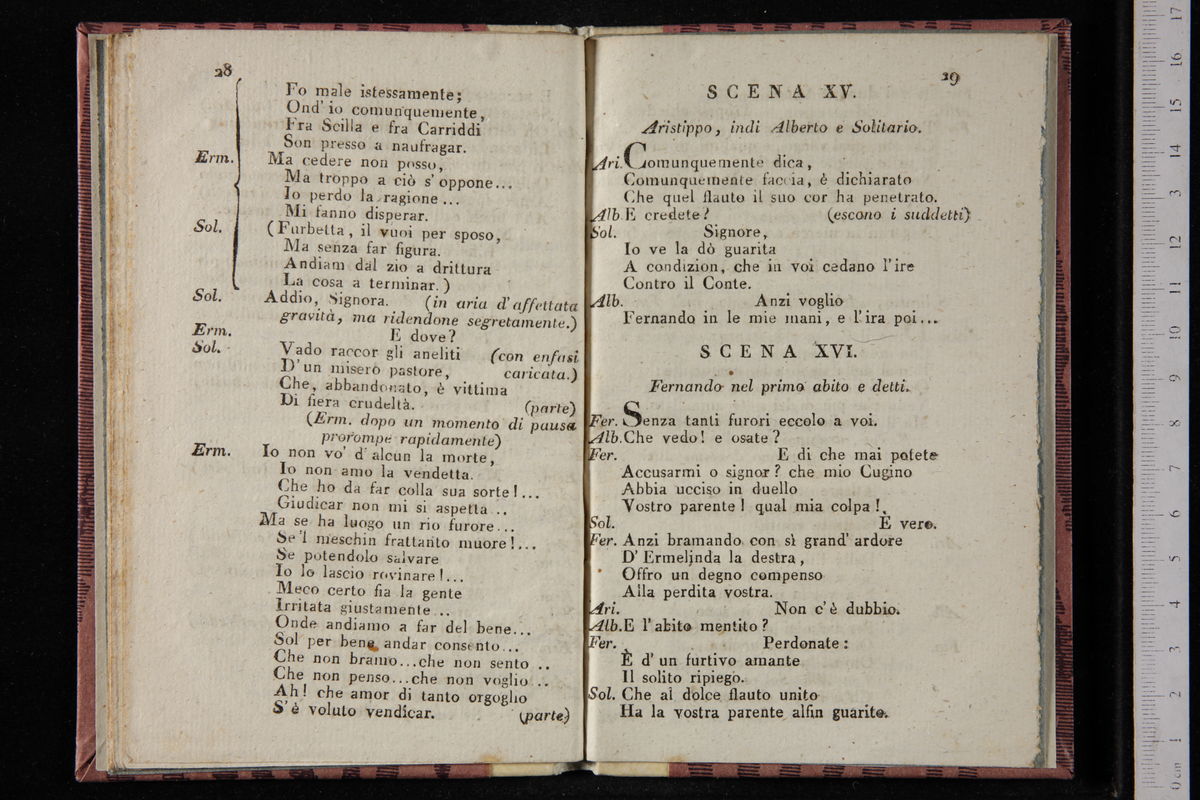 28
Fo male istessamente;
Ond' io comunquemente,
Fra Scilla e fra Carriddi
Son presso a naufragar.
Erm. Ma cedere non posso,
Ma troppo a ciò s' oppone...
Io perdo la ragione...
Mi fanno disperar.
Sol. (Furbetta, il vuoi per sposo,
Ma senza far figura.
Andiam dal zio a drittura
La cosa a terminar.)
Sol. Addio, Signora. (in aria d'affettata
gravità, ma ridendone segretamente.)
Erm. E dove?
Sol. Vado raccor gli aneliti (con enfasi
D' un misero pastore, caricata.)
Che, abbandonato, è vittima
Di fiera crudeltà. (parte)
(Erm. dopo un momento di pausa
prorompe rapidamente)
Erm. Io non vo' d' alcun la morte,
Io non amo la vendetta.
Che ho da far colla sua sorte!...
Giudicar non mi si aspetta..
Ma se ha luogo un rio furore...
Se 'l meschin frattanto muore!...
Se potendolo salvare
Io lo lascio rovinare!...
Meco certo fia la gente
Irritata giustamente..
Onde andiamo a far del bene...
Sol per bene andar consento...
Che non bramo...che non sento ..
Che non penso...che non voglio ..
Ah! che amor di tanto orgoglio
S' è voluto vendicar. (parte)
29
SCENA XV.
Aristippo, indi Alberto e Solitario.
Ari. Comunquemente dica,
Comunquemente faccia, è dichiarato
Che quel flauto il suo cor ha penetrato.
Alb. E credete? (escono i suddetti)
Sol. Signore,
Io ve la dò guarita
A condizion, che in voi cedano l'ire
Contro il Conte.
Alb. Anzi voglio
Fernando in le mie mani, e l'ira poi...
SCENA XVI.
Fernando nel primo abito e detti.
Fer. Senza tanti furori eccolo a voi.
Alb. Che vedo! e osate?
Fer. E di che mai potete
Accusarmi o signor? che mio Cugino
Abbia ucciso in duello
Vostro parente! qual mia colpa!
Sol. È vero.
Fer. Anzi bramando con sì grand' ardore
D' Ermelinda la destra,
Offro un degno compenso
Alla perdita vostra.
Ari. Non c'è dubbio.
Alb. E l'abito mentito?
Fer. Perdonate:
È d' un furtivo amante
Il solito ripiego.
Sol. Che al dolce flauto unito
Ha la vostra parente alfin guarito.
17
16
15
14
13
12
11
10
9
8
7
6
5
4
3
2
1
0 cm